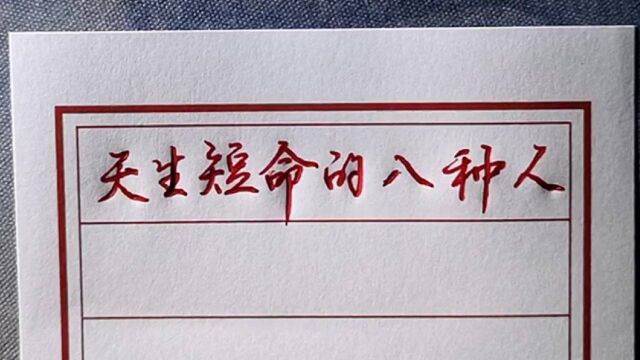 天生短命的八种人